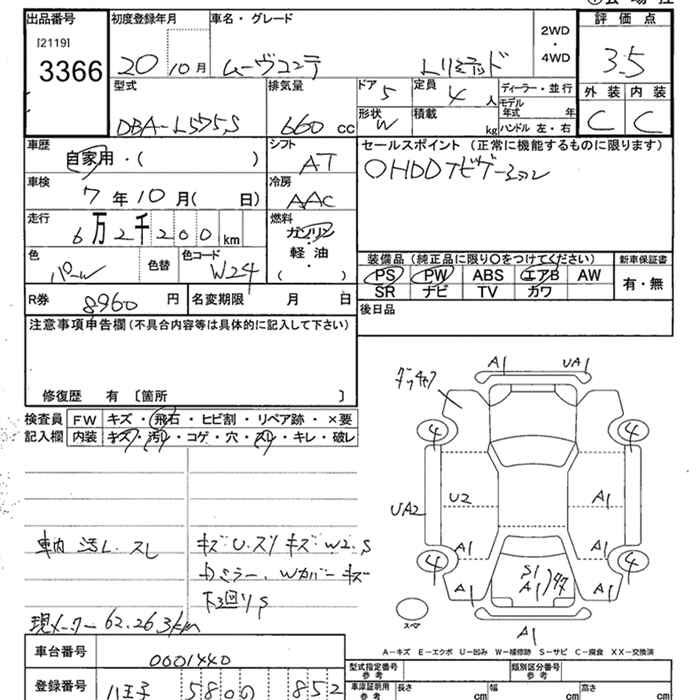 出品番号
[2119]
3366
初度登録年月
20 10月
車名・グレード
ムーヴコンテ Lリミテッド
2WD
・
4WD
評価点
3.5
外装 内装
C C
型式
DBA-L575S
排気量
660 cc
ドア
5
定員
4 人
形状
W
積載
kg
ディーラー・並行
モデル
年式 年
ハンドル 左・右
車歴
自家用・( )
シフト
AT
車検
7年10月( 日)
冷房
AAC
走行
6万2千200km
燃料
ガソリン
・
軽油
・
( )
色
パール
色替
色コード
W24
セールスポイント(正常に機能するものに限ります)
OHDDナビゲーション
装備品(純正品に限り○をつけてください)
PS PW ABS エアB AW
SR ナビ TV カワ
新車保証書
有・無
R券
8960円
名変期限 月 日
後日品
注意事項申告欄(不具合内容等は具体的に記入して下さい)
修復歴 有〔箇所 〕
検査員
記入欄
FW キズ・飛石・ヒビ割・リペア跡・×要
内装 キズ・汚レ・コゲ・穴・スレ・キレ・破レ
車内 汚レ.スレ
キズ:U.スリキズ:W2.S
ミラー.Wカバーキズ
下回りS
現メーター62.263km
A1 UA1
4 4
UA2 U2 A1
A1 A1
4 4
A1 S1 A1 A1
スペア
A1
A−キズ E−エクボ U−凹み W−補修跡 S−サビ C−腐食 XX−交換済
車台番号
0001440
登録番号
八王子 580 852
型式指定番号
参考
類別区分番号
参考
車庫証明用
参考
長さ cm
幅 cm
高さ cm